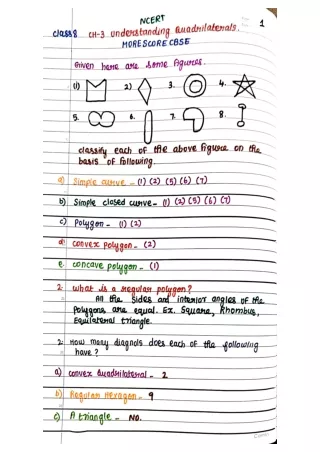 NCERT
1
Class 8 CH-3 Understanding Quadrilaterals.
MORE SCORE CBSE
Given here are some figures.
(1) 2) 3. 4.
5. 6. 7. 8.
classify each of the above figure on the
basis of following.
a) Simple curve - (1) (2) (5) (6) (7)
b) Simple closed curve - (1) (2) (5) (6) (7)
c) Polygon - (1) (2)
d) convex polygon - (2)
e. concave polygon - (1)
2. what is a regular polygon?
All the sides and interior angles of the
Polygons are equal. Ex. Square, Rhombus,
Equilateral triangle.
2. How many diagnols does each of the following
have?
a) convex Quadrilateral - 2
b) Regular Hexagon - 9
c) A triangle - No.